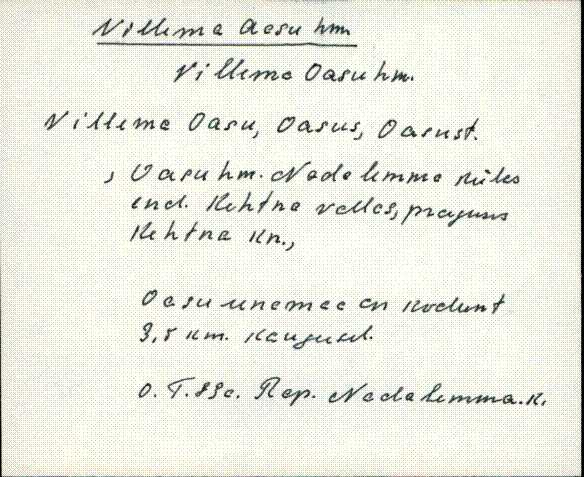 Villema Aasu hm.
Villema Oasu hm.
Villema Oasu, Oasus, Oasust.
, Oasu hm. Nadalemma külas
end. Kehtna vallas, praeguses
Kehtna kn.,
Oasu unemaa on kodunt
3,5 km. kaugusel.
O. T. 89a. Rap. Nadalemma. k.